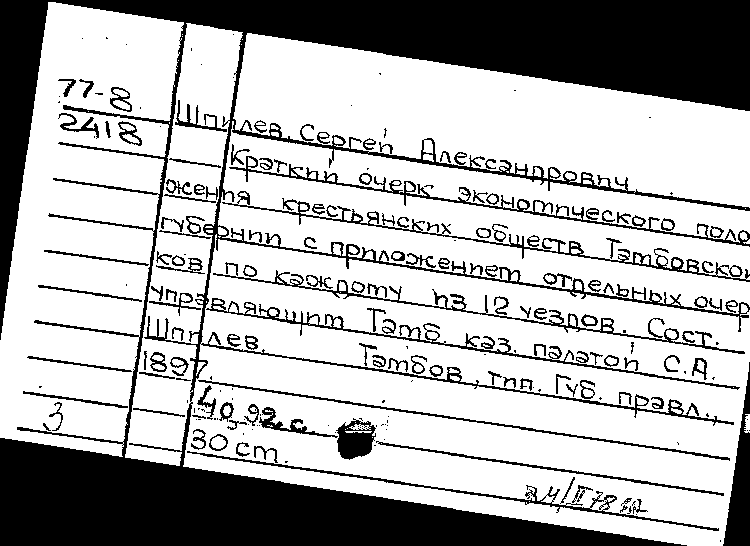 77-8
2418
Шпилев, Сергей Александрович.
Краткий очерк экономического поло
жения крестьянских обществ Тамбовской
губернии с приложением отдельных очер
ков по каждому из 12 уездов. Сост.
управляющим Тамб. каз. палатой С.А.
Шпилев. Тамбов, тип. Губ. правл.,
1897.
40, 92 с.
30 см.
3